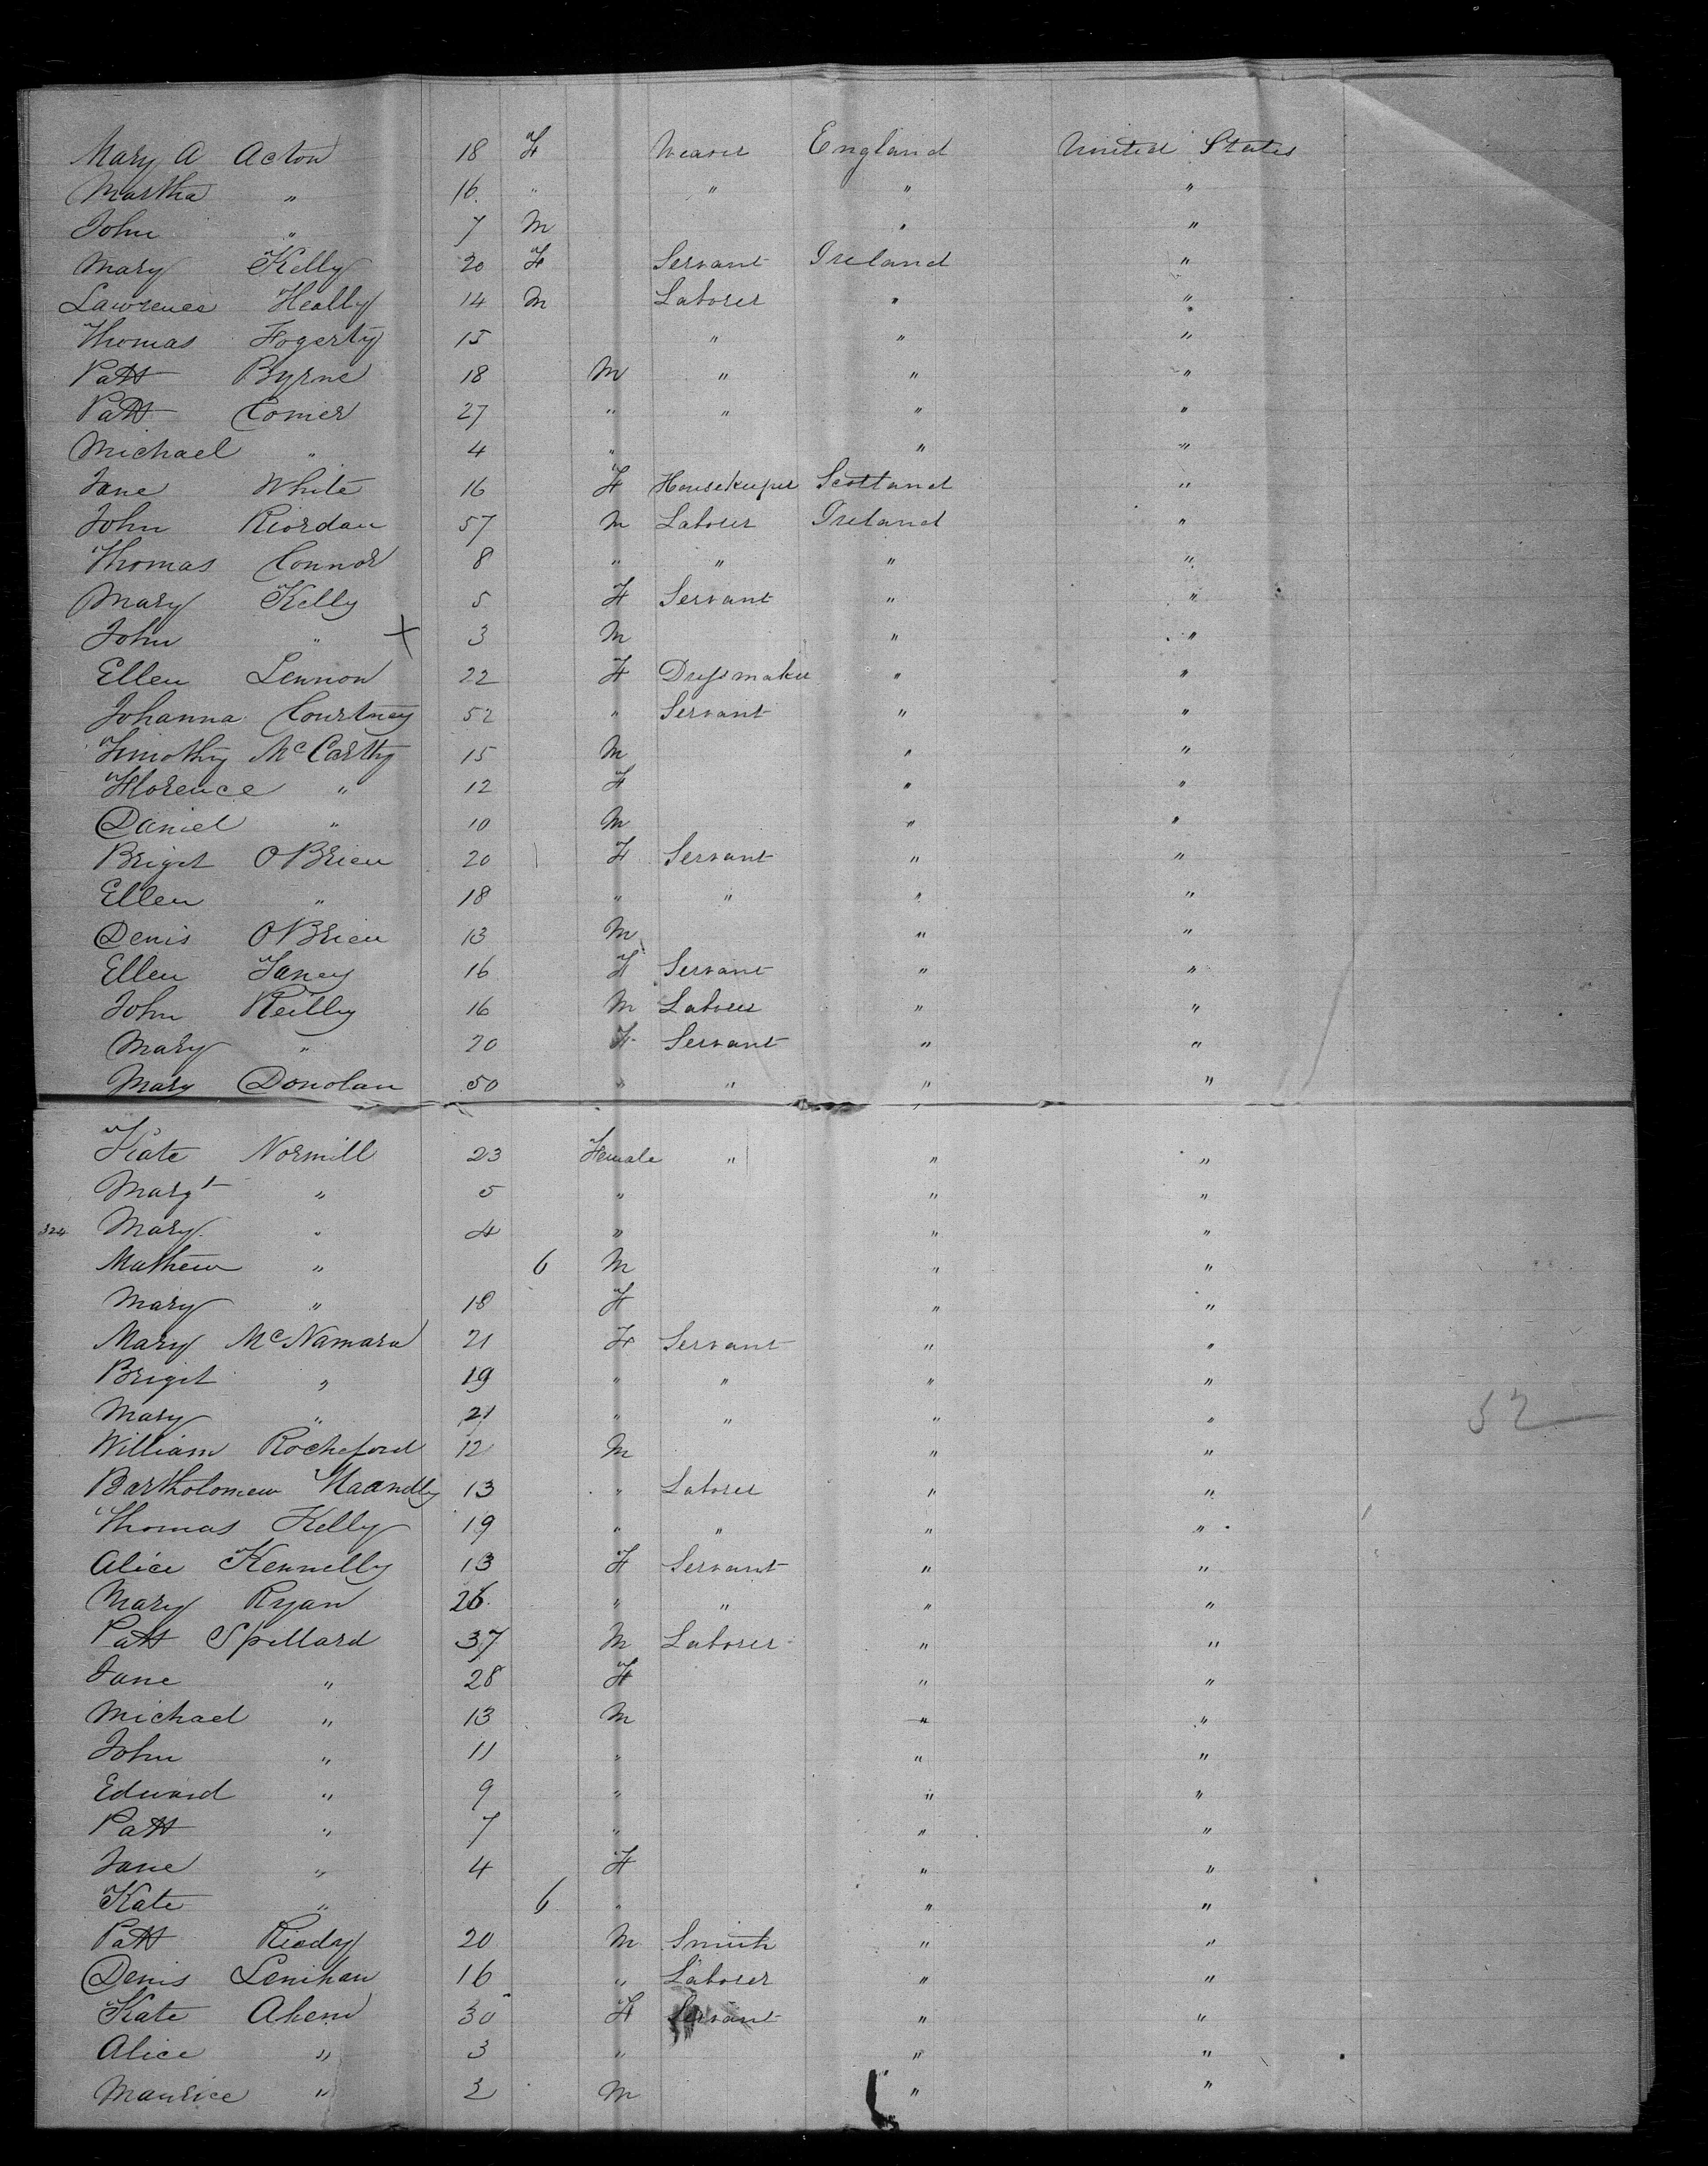 Mary A Acton 18 F Weaver England United States
Martha " 16 " " " "
John " 7 M " "
Mary Kelly 20 F Servant Ireland "
Lawrence Heally 14 M Laborer " "
Thomas Fogerty 15 " " "
Patt Byrne 18 M " " "
Patt Comer 27 " " " "
Michael " 4 " " "
Jane White 16 F Housekeeper Scotland "
John Riordan 57 M Laborer Ireland "
Thomas Connor 8 " " " "
Mary Kelly 5 F Servant " "
John " X 3 M " "
Ellen Lennon 22 F Dressmaker " "
Johanna Courtney 52 " Servant " "
Timothy McCarthy 15 M " "
Florence " 12 F " "
Daniel " 10 M " "
Briget OBrien 20 F Servant " "
Ellen " 18 " " " "
Denis OBrien 13 M " "
Ellen 16 F Servant " "
John Reilly 16 M Laborer " "
Mary " 20 F Servant " "
Mary Donolan 50 " " " "
Kate Normill 23 Female " " "
Margt " 5 " " "
324 Mary " 4 " " "
Mathew " 6 M " "
Mary " 18 F " "
Mary McNamara 21 F Servant " "
Briget " 19 " " " "
Mary " 21 " " " "
52
William Rocheford 12 M " "
Bartholomew 13 " Laborer " "
Thomas Kelly 19 " " " "
Alice Kennelly 13 F Servant " "
Mary Ryan 26 " " " "
Patt Spillard 37 M Laborer " "
Jane " 28 F " "
Michael " 13 M " "
John " 11 " " "
Edward " 9 " " "
Patt " 7 " " "
Jane " 4 F " "
Kate " 6 " " "
Patt Readry 20 M Smith " "
Denis Lenihan 16 " Laborer " "
Kate Ahern 30 F Servant " "
Alice " 3 " " "
Maurice " 2 M " "